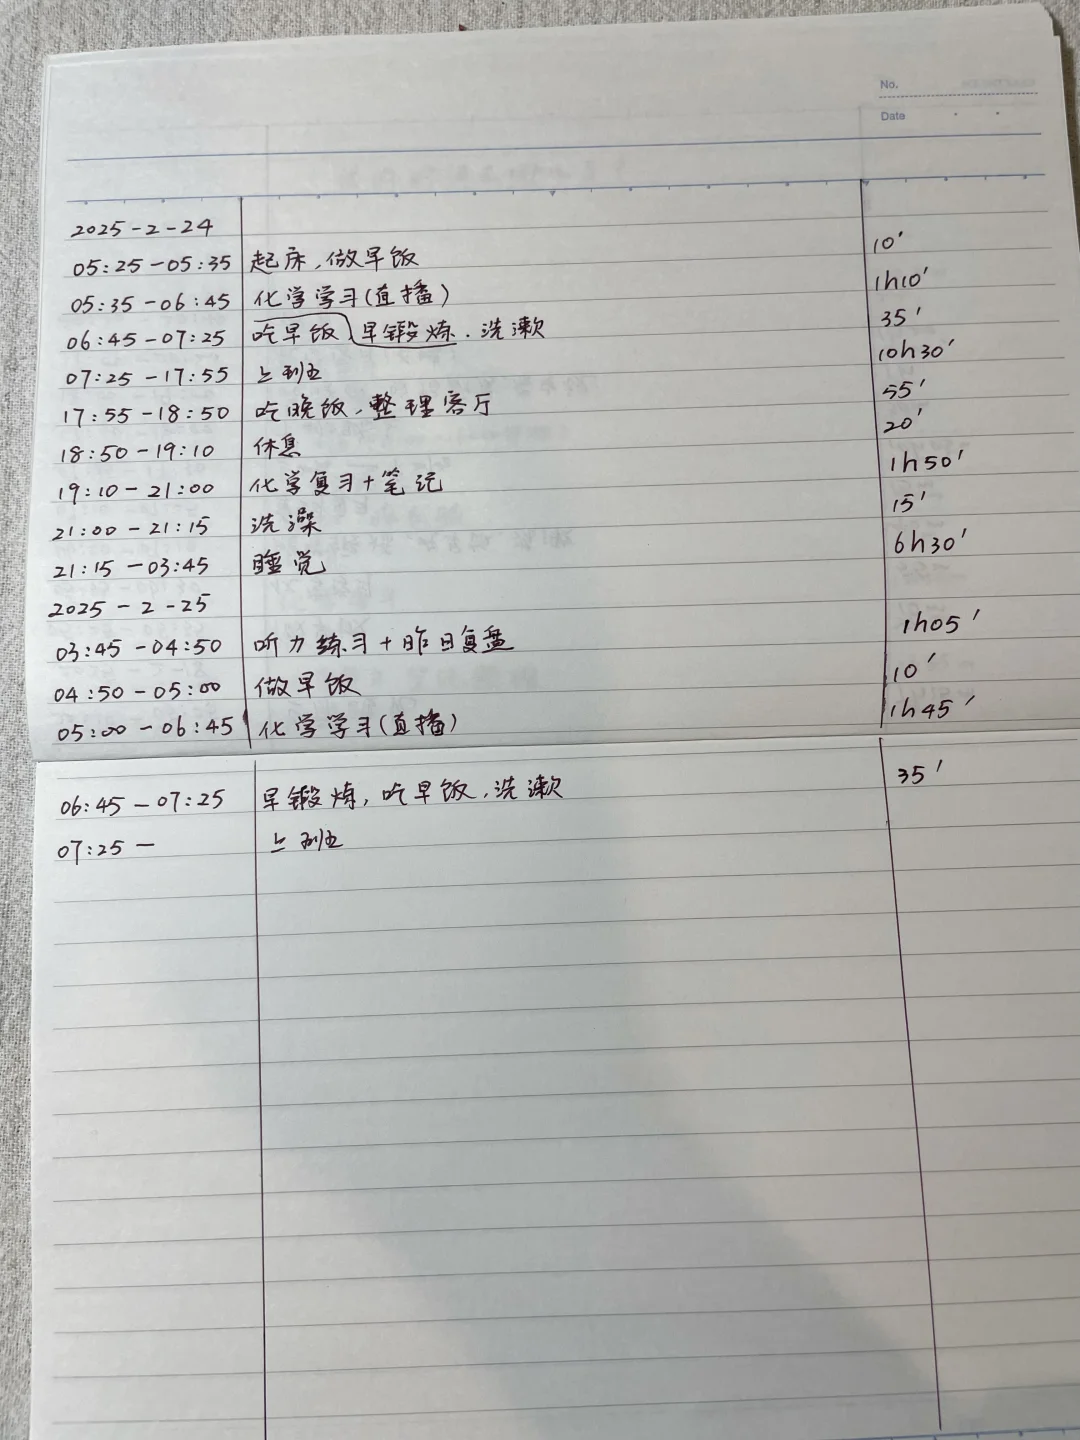 No.
Date
2025-2-24
05:25-05:35 起床,做早饭 10'
05:35-06:45 化学学习(直播) 1h10'
06:45-07:25 吃早饭 早锻炼.洗漱 35'
07:25-17:55 上班 10h30'
17:55-18:50 吃晚饭,整理客厅 55'
18:50-19:10 休息 20'
19:10-21:00 化学复习+笔记 1h50'
21:00-21:15 洗澡 15'
21:15-03:45 睡觉 6h30'
2025-2-25
03:45-04:50 听力练习+昨日复盘 1h05'
04:50-05:00 做早饭 10'
05:00-06:45 化学学习(直播) 1h45'
06:45-07:25 早锻炼,吃早饭,洗漱 35'
07:25- 上班